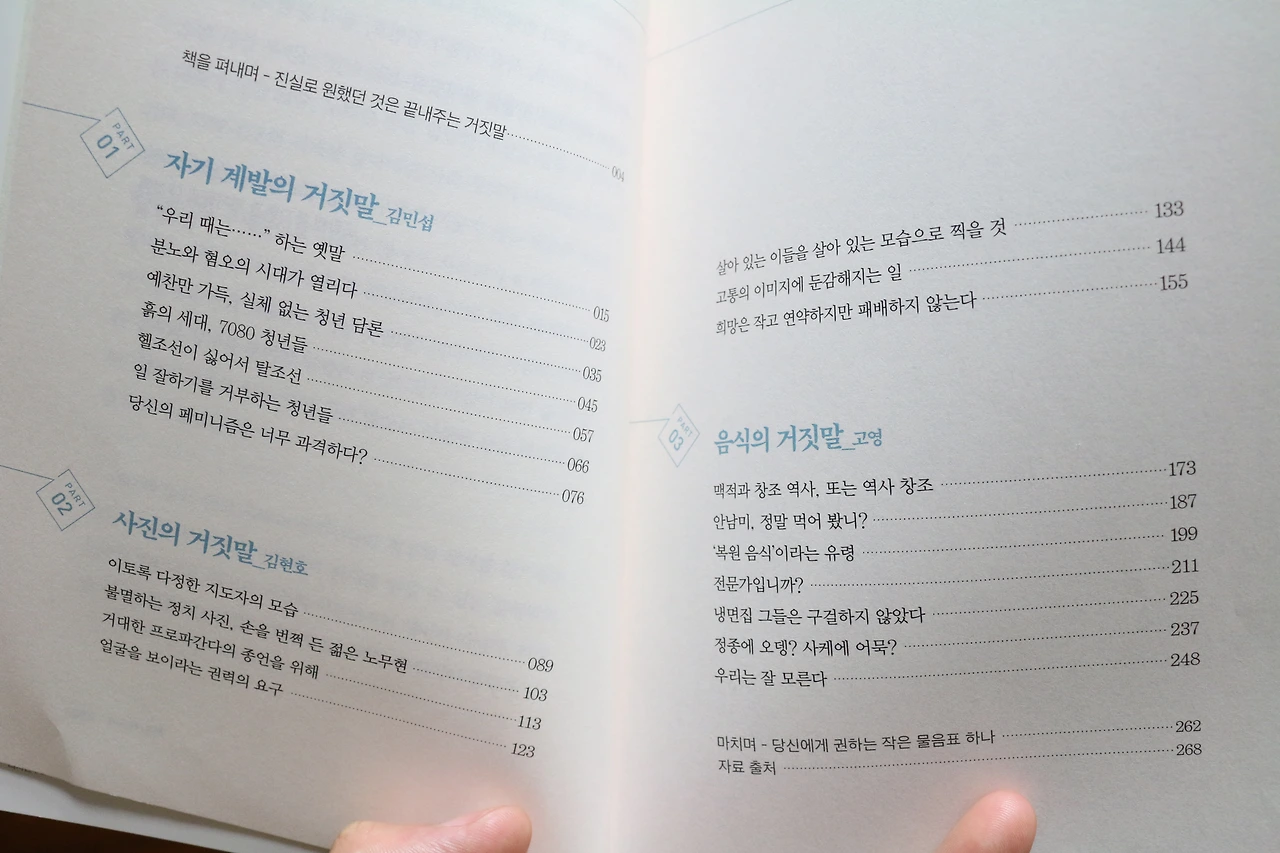 책을 펴내며 - 진실로 원했던 것은 끝내주는 거짓말 004
PART 01
자기 계발의 거짓말_김민섭
“우리 때는……” 하는 옛말 015
분노와 혐오의 시대가 열리다 023
예찬만 가득, 실체 없는 청년 담론 035
흙의 세대, 7080 청년들 045
헬조선이 싫어서 탈조선 057
일 잘하기를 거부하는 청년들 066
당신의 페미니즘은 너무 과격하다? 076
PART 02
사진의 거짓말_김현호
이토록 다정한 지도자의 모습 089
불멸하는 정치 사진, 손을 번쩍 든 젊은 노무현 103
거대한 프로파간다의 종언을 위해 113
얼굴을 보이라는 권력의 요구 123
살아 있는 이들을 살아 있는 모습으로 찍을 것 133
고통의 이미지에 둔감해지는 일 144
희망은 작고 연약하지만 패배하지 않는다 155
PART 03
음식의 거짓말_고영
맥적과 창조 역사, 또는 역사 창조 173
안남미, 정말 먹어 봤니? 187
‘복원 음식’이라는 유령 199
전문가입니까? 211
냉면집 그들은 구걸하지 않았다 225
정종에 오뎅? 사케에 어묵? 237
우리는 잘 모른다 248
마치며 - 당신에게 권하는 작은 물음표 하나 262
자료 출처 268